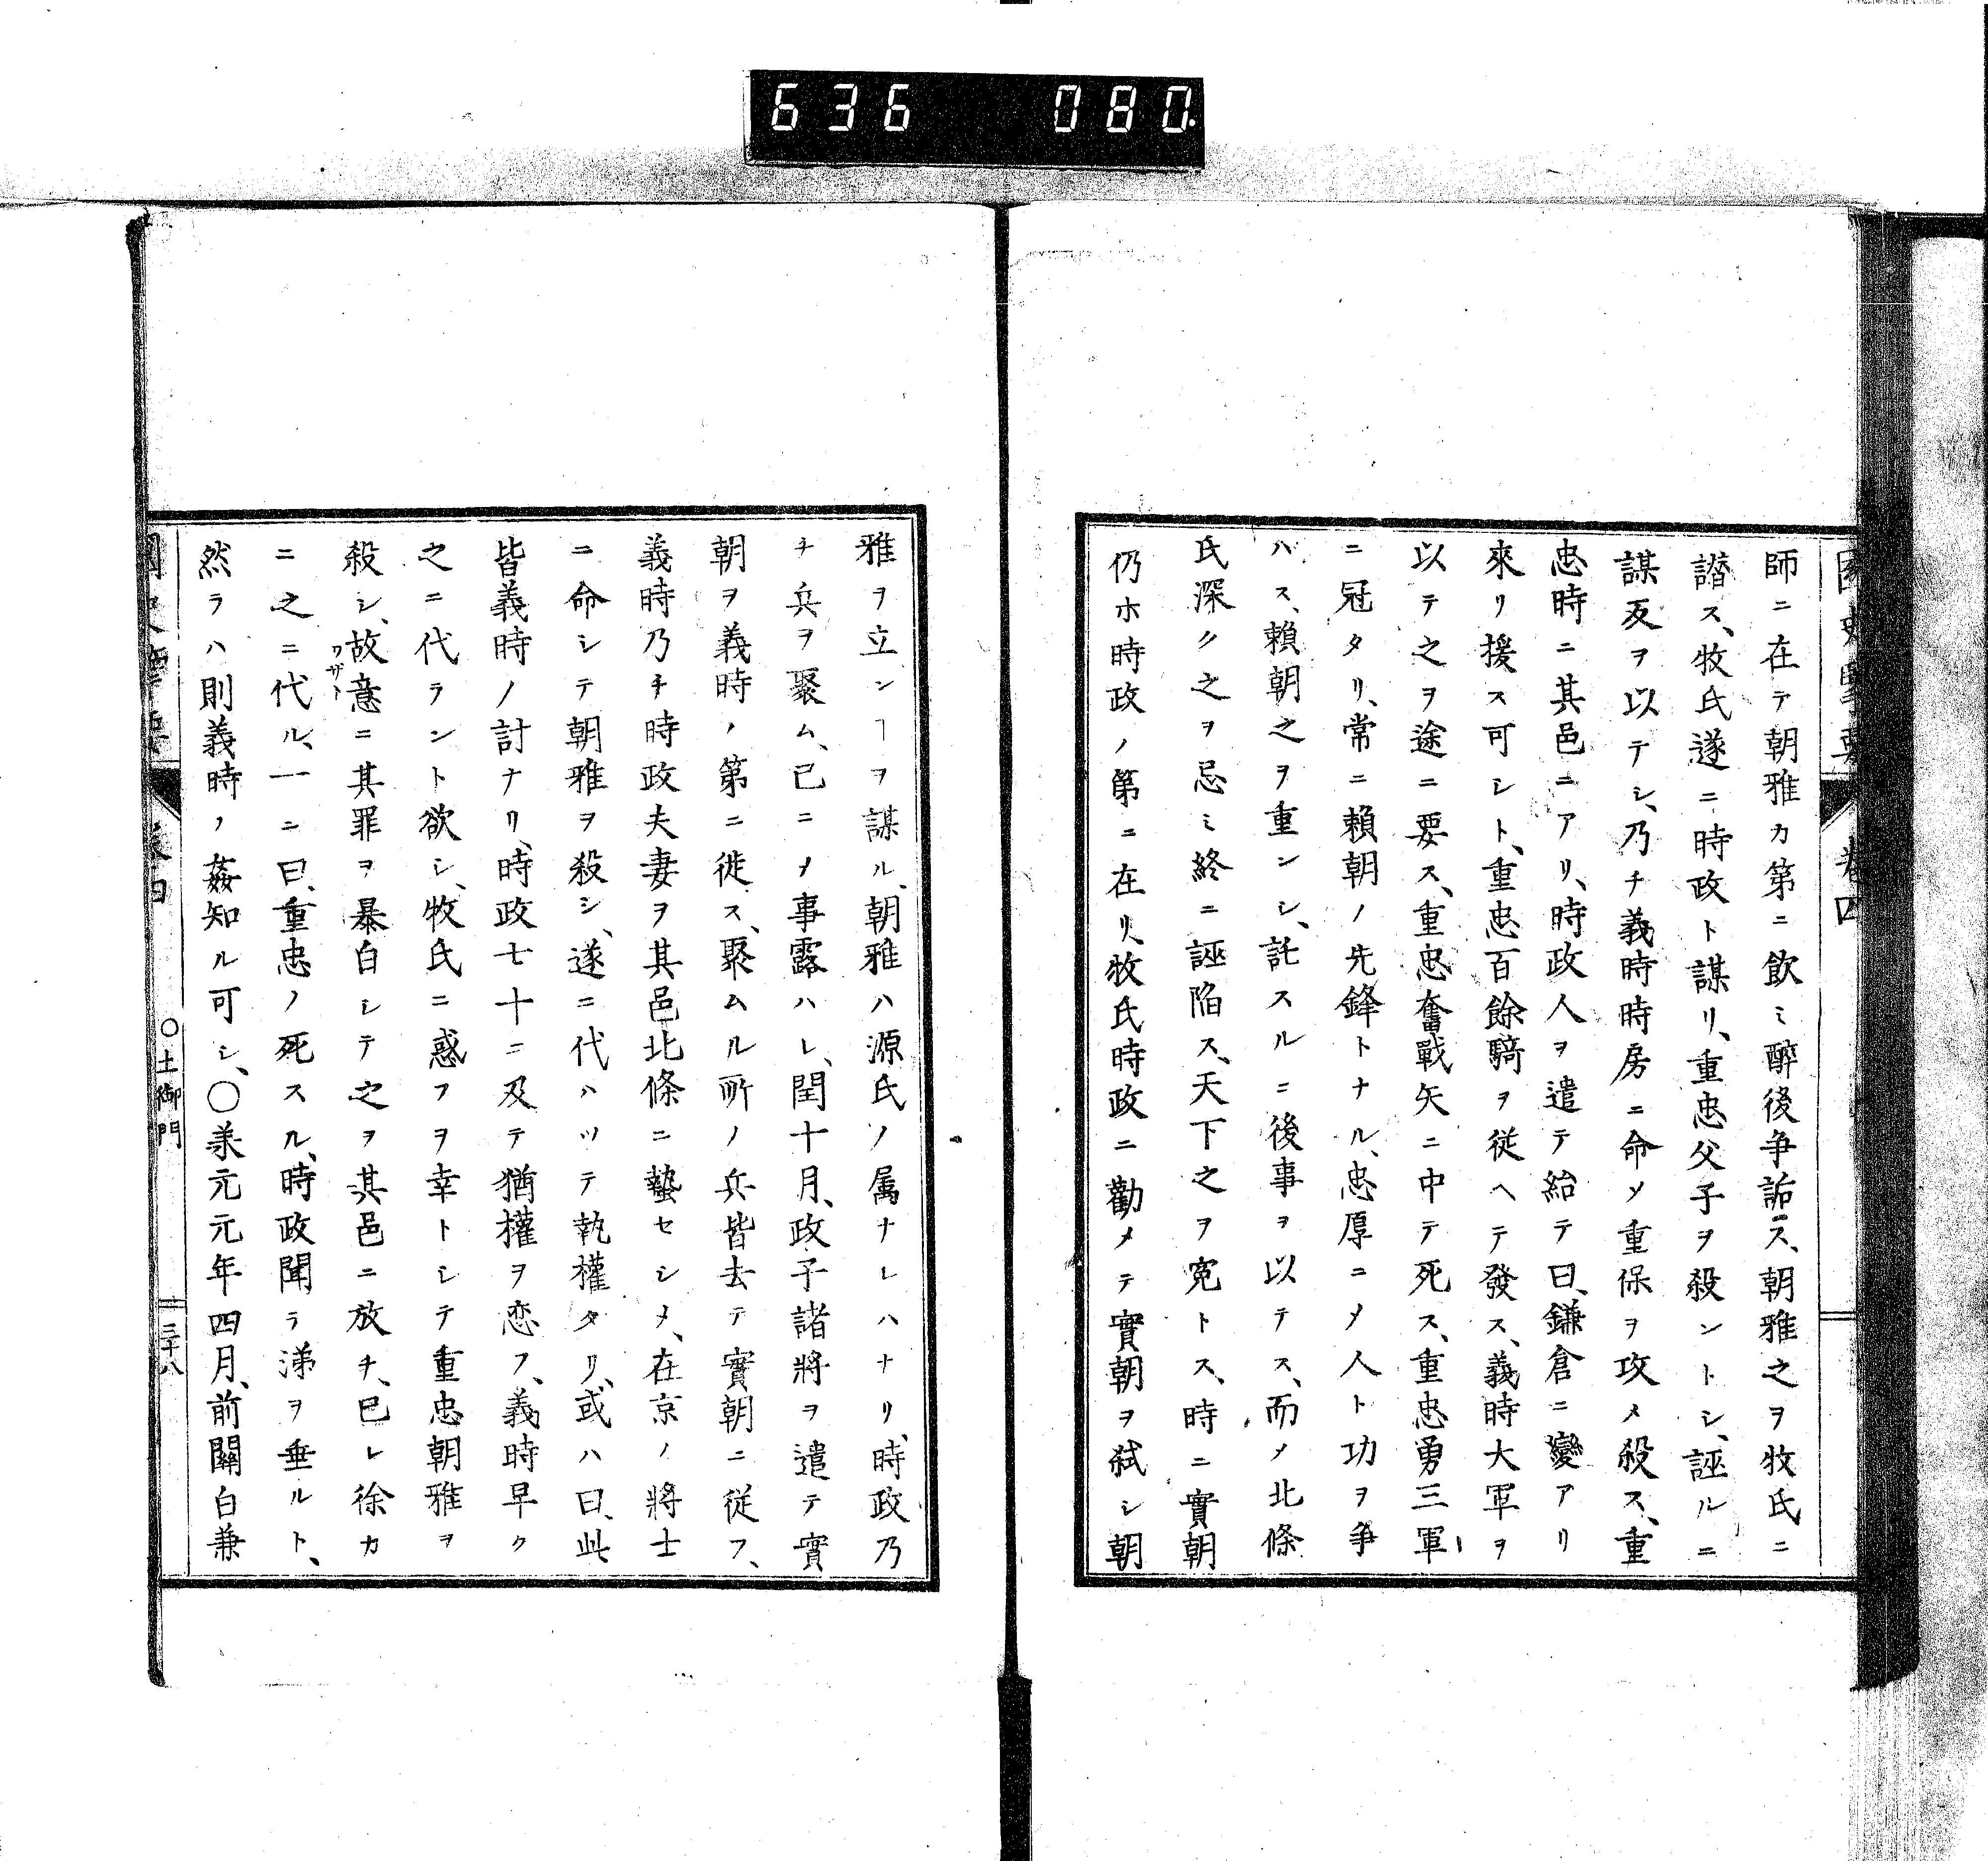 636 080.
卷四
師ニ在テ朝雅カ第ニ飲ミ醉後争詬ス、朝雅之ヲ牧氏ニ
譖ス、牧氏遂ニ時政ト謀リ、重忠父子ヲ殺ントシ、誣ルニ
謀反ヲ以テシ、乃チ義時時房ニ命〆重保ヲ攻メ殺ス、重
忠時ニ其邑ニアリ、時政人ヲ遣テ紿テ曰、鎌倉ニ變アリ
來リ援ス可シト、重忠百餘騎ヲ従ヘテ發ス、義時大軍ヲ
以テ之ヲ途ニ要ス、重忠奮戰矢ニ中テ死ス、重忠勇三軍
ニ冠タリ、常ニ賴朝ノ先鋒トナル、忠厚ニ〆人ト功ヲ爭
ハス、賴朝之ヲ重ンシ、託スルニ後事ヲ以テス、而〆北條
氏深ク之ヲ忌ミ終ニ誣陷ス、天下之ヲ寃トス、時ニ實朝
仍ホ時政ノ第ニ在リ、牧氏時政ニ勸メテ實朝ヲ弑シ朝
雅ヲ立ンヿヲ謀ル、朝雅ハ源氏ノ属ナレハナリ、時政乃
チ兵ヲ聚ム、已ニ〆事露ハレ、閏十月、政子諸將ヲ遣テ實
朝ヲ義時ノ第ニ徙ス、聚ムル所ノ兵皆去テ實朝ニ従フ、
義時乃チ時政夫妻ヲ其邑北條ニ蟄セシメ、在京ノ將士
ニ命シテ朝雅ヲ殺シ、遂ニ代ハツテ執權タリ、或ハ曰、此
皆義時ノ討ナリ、時政七十ニ及テ猶權ヲ恋フ、義時早ク
之ニ代ラント欲シ、牧氏ニ惑フヲ幸トシテ重忠朝雅ヲ
殺シ、故意ニ其罪ヲ暴白シテ之ヲ其邑ニ放チ、已レ徐カ
ワザト
ニ之ニ代ル、一ニ曰、重忠ノ死スル、時政聞ラ涕ヲ垂ルト、
然ラハ則義時ノ姦知ル可シ、〇承元元年四月、前關白兼
〇土御門
三十八